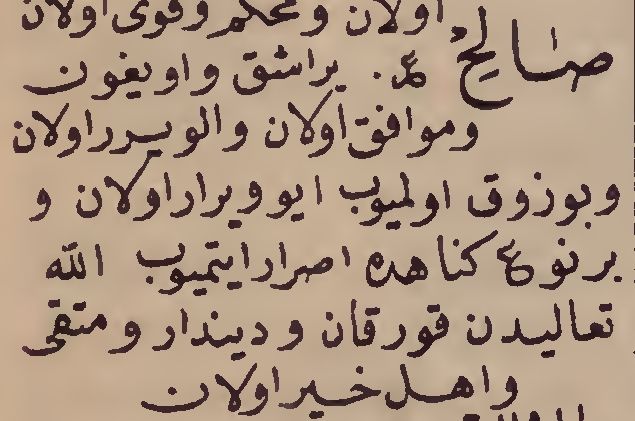 اولان و محكم و قوى اولان
صَالِحْ عـ . يراشق و اويغون
و موافق اولان و الويرر اولان
و بوزوق اولميوب ايو و يرار اولان و
بر نوع كناهده اصرار ايتميوب الله
تعاليدن قورقان و ديندار و متقى
و اهل خير اولان